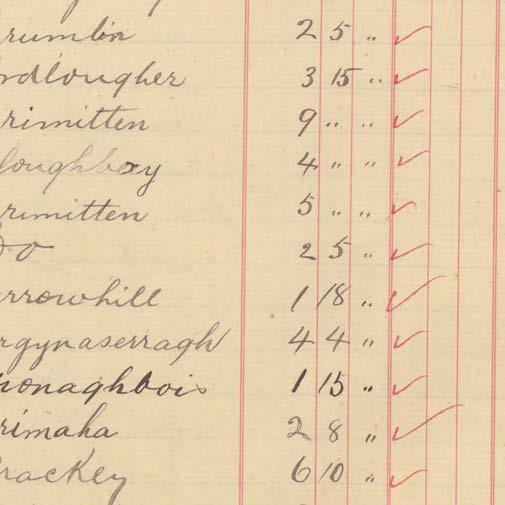 rumlin 2 5 „
rdlougher 3 15 „
rimitten 9 „ „
loughboy 4 „ „
rimitten 5 „ „
Do 2 5 „
rrowhill 1 18 „
rgynaserragh 4 4 „
nonaghbois 1 15 „
rimaha 2 8 „
rackey 6 10 „